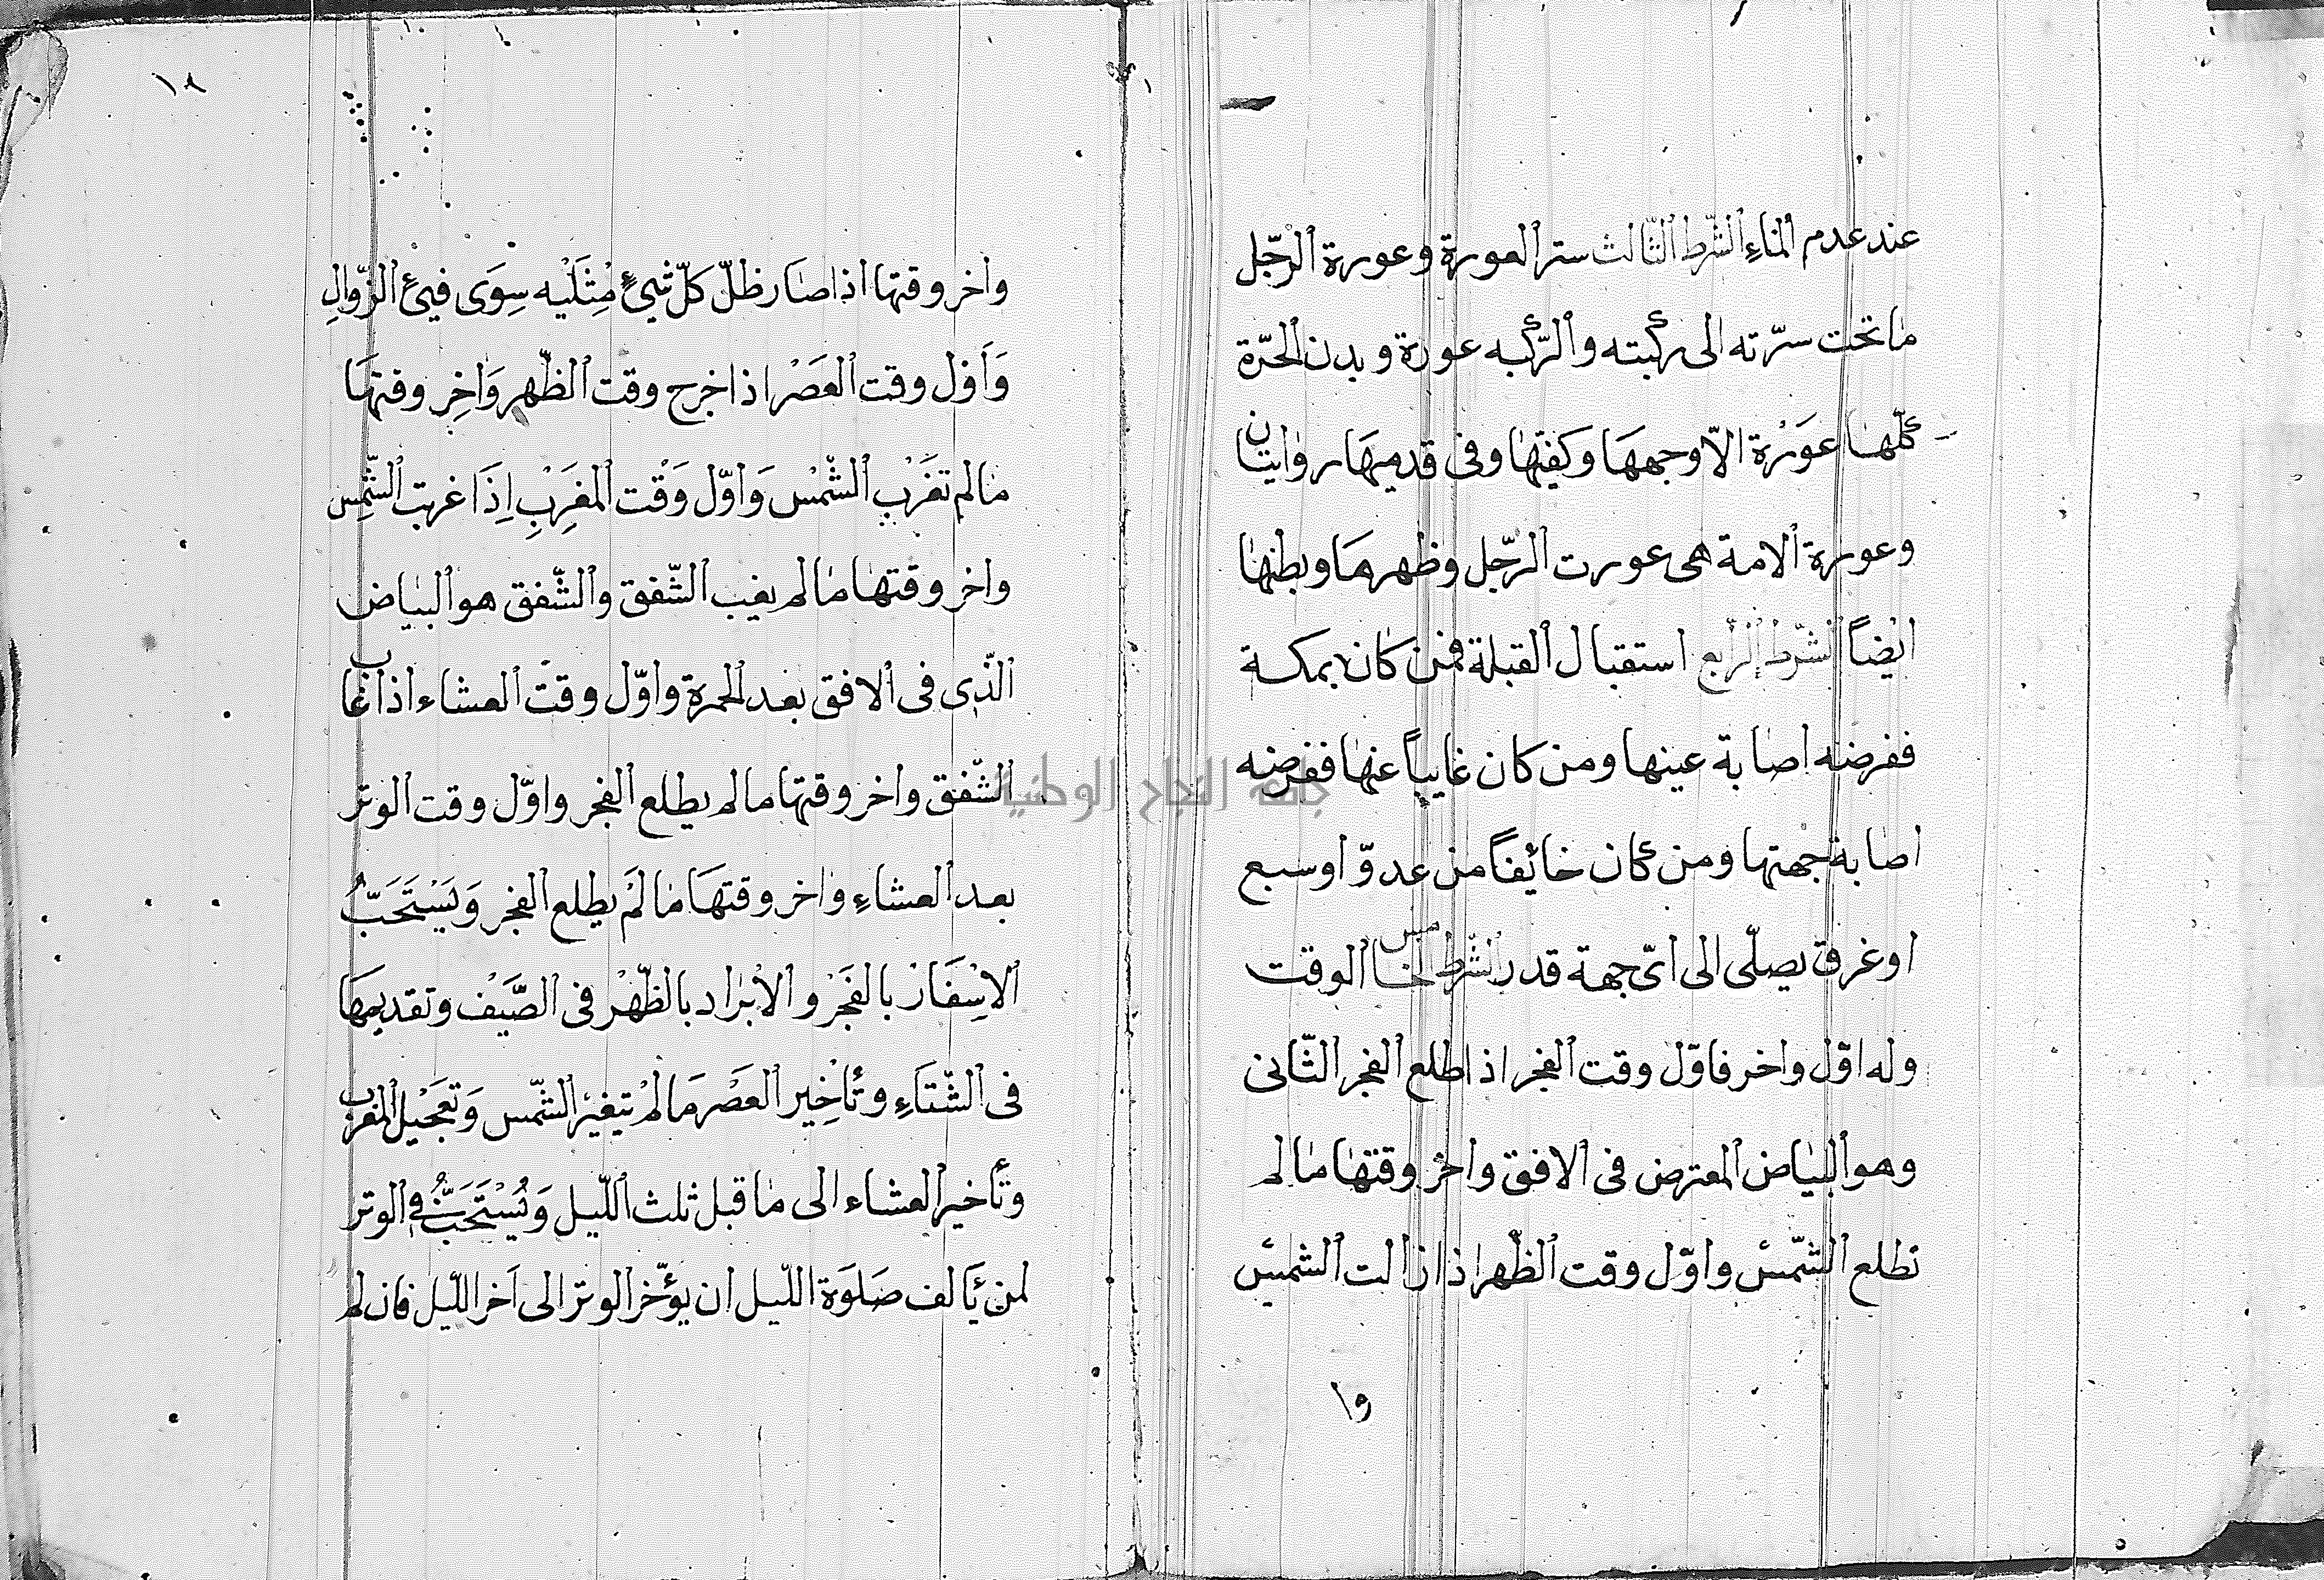 عند عدم ألمناءِ الشّرط الثّالث ستر العورة وعورة الرّجل
ما تحت سرّته الى ركبته والرّكبه عورة وبدن الحرّة
كلّها عَوْرة الاّ وجهها وكفيّها وفى قدميها روايتان
وعورة الامة هى عورت الرّجل وظهرها وبطنها
ايضاً الشّرط الرّابع استقبال القبلة فمن كان بمكة
ففرضه اصابة عينها ومن كان غايباً عنها ففرضه
اصابة جهتها ومن كان خائفاً من عدوّ او سبع
او غرق يصلّى الى اىّ جهة قدر الشّرط الخامس الوقت
وله اوّل واخر فاوّل وقت الفجر اذا طلع الفجر الثّانى
وهو البياض المعترض فى الافق واخر وقتها ما لم
تطلع الشّمس واوّل وقت الظّهر اذا زالت الشمس
١٥
١٨
واخر وقتها اذا صار ظلّ كلّ شئٍ مِثَلَيْه سِوَى فيئ الزّوالِ
وَأَوّل وقت العَصْر اذا خرج وقت الظّهر وَاخِر وقتها
ما لم تغَرْب الشّمْس وَاوّل وَقْت المغَرِبِ اِذَا غربت الشّمِس
واخر وقتها ما لم يغب الشّفق والشّفق هو البياض
الّذى فى الافق بعد الحمرة واوّل وقت العشاء اذا غاب
الشّفق واخر وقتها ما لم يطلع الفجر واوّل وقت الوتر
بعد العشاءِ واخر وقتهَا ما لَمْ يطلع الفجر وَيَسْتَحَبُّ
الاسِْفَار بالفَجَرْ والأبْراد بالظّهْر فى الصَّيَفْ وتقديمها
فى الشّتاَءِ وتأخِير العَصْر مَا لمْ يتغيّر الشّمس وَتعَجْيل المغرب
وتأخير العشاء الى ما قبل ثلث اللّيل وَيُسْتَحَبُّ فى الوتر
لمن يَألف صَلَوَة اللّيل ان يؤخّر الوتر الى اَخر اللّيل فان لم
جامعة النجاح الوطنية